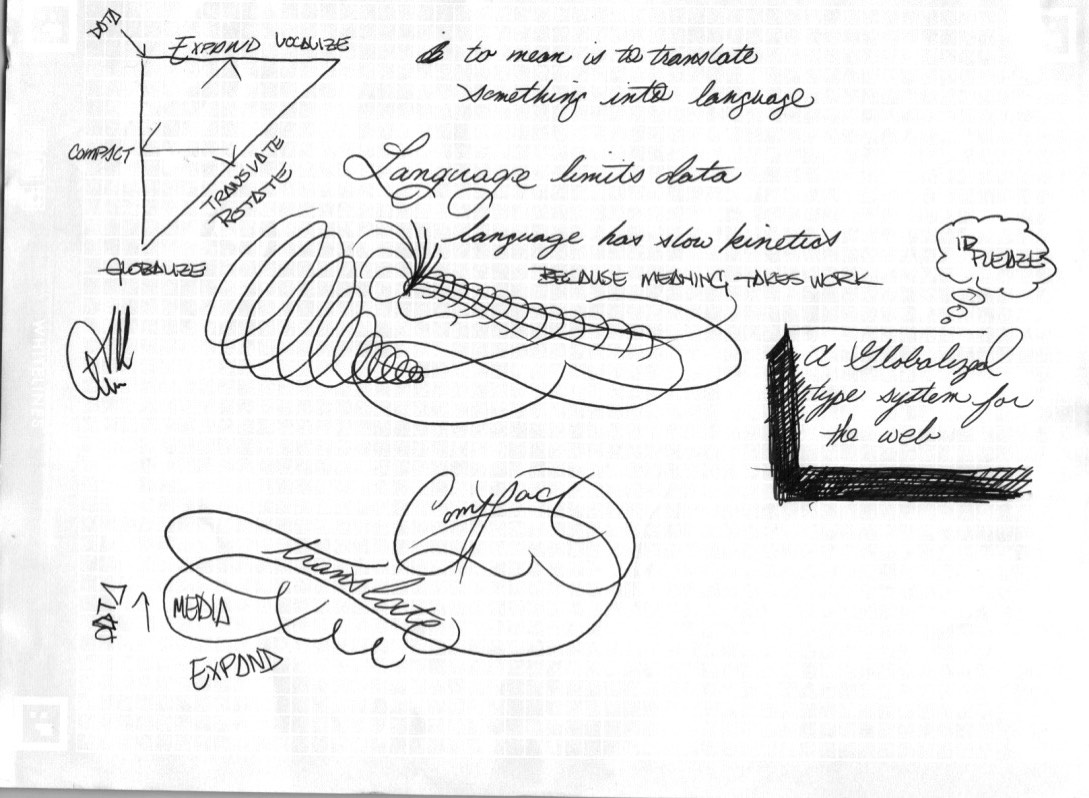 DATA
EXPAND VOCALIZE
COMPACT
TRANSLATE
ROTATE
GLOBALIZE
to mean is to translate
something into language
Language limits data
language has slow kinetics
BECAUSE MEANING TAKES WORK
PLEAZE
A Globalized
type system for
the web
Compact
translate
DATA
MEDIA
EXPAND